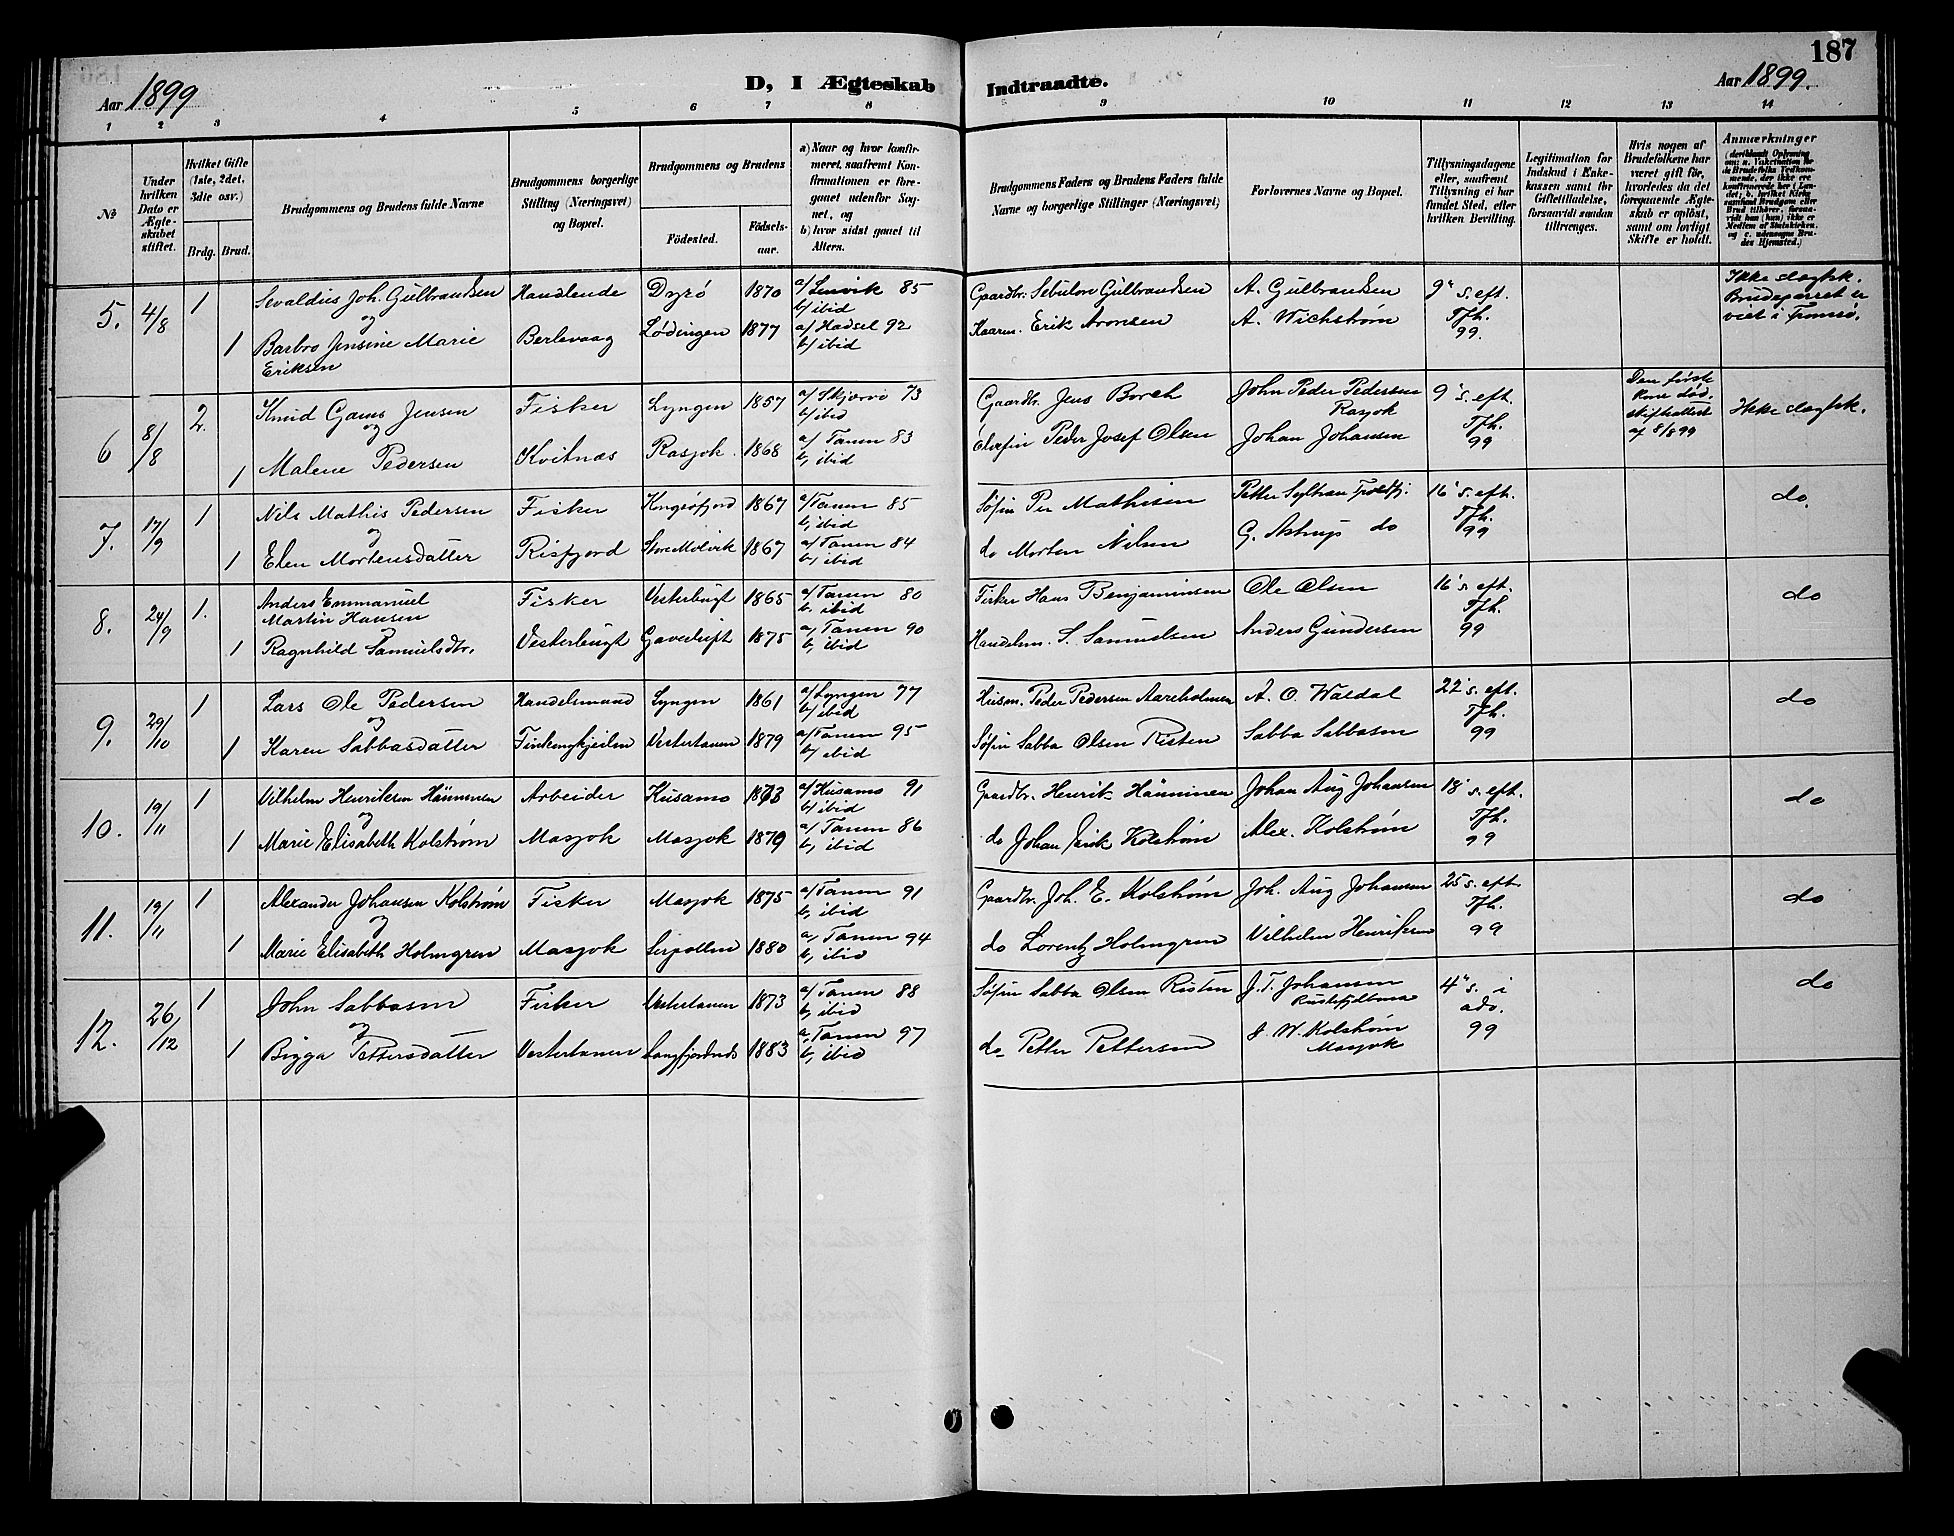 187
Aar 1899
D, I Ægteskab Indtraadte.
Aar 1899.
1 2 3 4 5 6 7 8 9 10 11 12 13 14
№
Under hvilken Dato er Ægteskabet stiftet.
Hvilket Gifte (1ste, 2det, 3die osv.)
Brdg. Brud.
Brudgommens og Brudens fulde Navne
Brudgommens borgerlige Stilling (Næringsvei) og Bopæl.
Brudgommens og Brudens
Fødested.
Fødselsaar.
a) Naar og hvor konfirmeret, saafremt Konfirmationen er foregaaet udenfor Sognet, og
b) hvor sidst gaaet til Alters.
Brudgommens Faders og Brudens Faders fulde Navne og borgerlige Stillinger (Næringsvei)
Forlovernes Navne og Bopæl.
Tillysningsdagene eller, saafremt Tillysning ei har fundet Sted, efter hvilken Bevilling.
Legitimation for Indskud i Enkekassen samt for Giftetilladelse, forsaavidt saadan tiltrænges.
Hvis nogen af Brudefolkene har været gift før, hvorledes da det foregaaende Ægteskab er opløst, samt om lovligt Skifte er holdt.
Anmærkninger
5. 4/8 1 Sevaldus Joh. Gulbrandsen Handlende Dyrö 1870 a/ Lenvik 85 b/ ibid Gaardbr. Sebulon Gulbrandsen A. Gulbrandsen 9' s. eft. Tfh. 99. Ikke slægtsk. Brudeparret er viet i Tromsø.
og
1 Barbro Jensine Marie Eriksen Berlevaag Lødingen 1877 a/ Hadsel 92 b/ ibid Kaarm. Erik Aronsen A. Wichstrøm
6 8/8 2. Knud Gams Jensen Fisker Lyngen 1857 a/ Skjærvø 73 b/ ibid Gaardbr. Jens Borch John Peder Pedersen Rasjok 9' s. eft. Tfh. 99 Den første Kone død. skifteattest af 8/8 99 Ikke slægtsk.
og
1 Malene Pedersen Kvitnæs Rasjok 1868 a/ Tanen 83 b, ibid Elvefin Peder Josef Olsen Johan Johansen
7. 17/9 1 Nils Mathis Pedersen Fisker Kongsøfjord 1867 a/ Tanen 85 b, ibid Søfin Per Mathisen Petter Sylhan Troldfj. 16' s. eft. Tfh. 99 do
og
1 Elen Mortensdatter Risfjord Store Molvik 1867 a/ Tanen 84 b, ibid do Morten Nilsen G. Astrup do
8. 24/9 1. Anders Emmanuel Martin Hansen Fisker Vesterbugt 1865 a/ Tanen 80 b, ibid Fisker Hans Benjaminsen Ole Olsen 16' s. eft. Tfh. 99 do
og
1 Ragnhild Samuelsdtr. Vesterbugt Gavesluft 1875 a, Tanen 90 b, ibid Handelsm. S. Samuelsen Anders Gundersen
9. 29/10 1 Lars Ole Pedersen Handelsmand Lyngen 1861 a/ Lyngen 77 b/ ibid Husm. Peder Pedersen Aareholmen A. O. Waldal 22' s. eft. Tfh. 99 do
og
1 Karen Sabbasdatter Finkongkjeilen Vestertanen 1879 a/ Tanen 95 b/ ibid Søfin Sabba Olsen Risten Sabba Sabbasen
10. 19/11 1 Vilhelm Henriksen Hänninen Arbeider Kusamo 1873 a/ Kusamo 91 b/ ibid Gaardbr. Henrik Hänninen Johan Aug Johansen 18' s. eft. Tfh. 99 do
og
1 Marie Elisabeth Kolstrøm Masjok Masjok 1870 a/ Tanen 86 b, ibid do Johan Erik Kolstrøm Alex. Kolstrøm
11. 19/11 1 Alexander Johansen Kolstrøm Fisker Masjok 1875 a/ Tanen 91 b, ibid Gaardbr. Joh. E. Kolstrøm Joh. Aug Johansen 25 s. eft. Tfh. 99 do
og
1 Marie Elisabeth Holmgren Masjok Seipollen 1880 a, Tanen 94 b, ibid do Lorentz Holmgren Vilhelm Henriksen
12. 26/12 1 John Sabbasen Fisker Vestertanen 1873 a/ Tanen 88 b, ibid Søfin Sabba Olsen Risten J. T. Johansen Rustefjelbma 4' s. i adv. 99 do
og
1 Bigga Pettersdatter Vestertanen Langfjordnæs 1883 a, Tanen 97 b, ibid do Petter Pettersen J. W. Kolstrøm Masjok